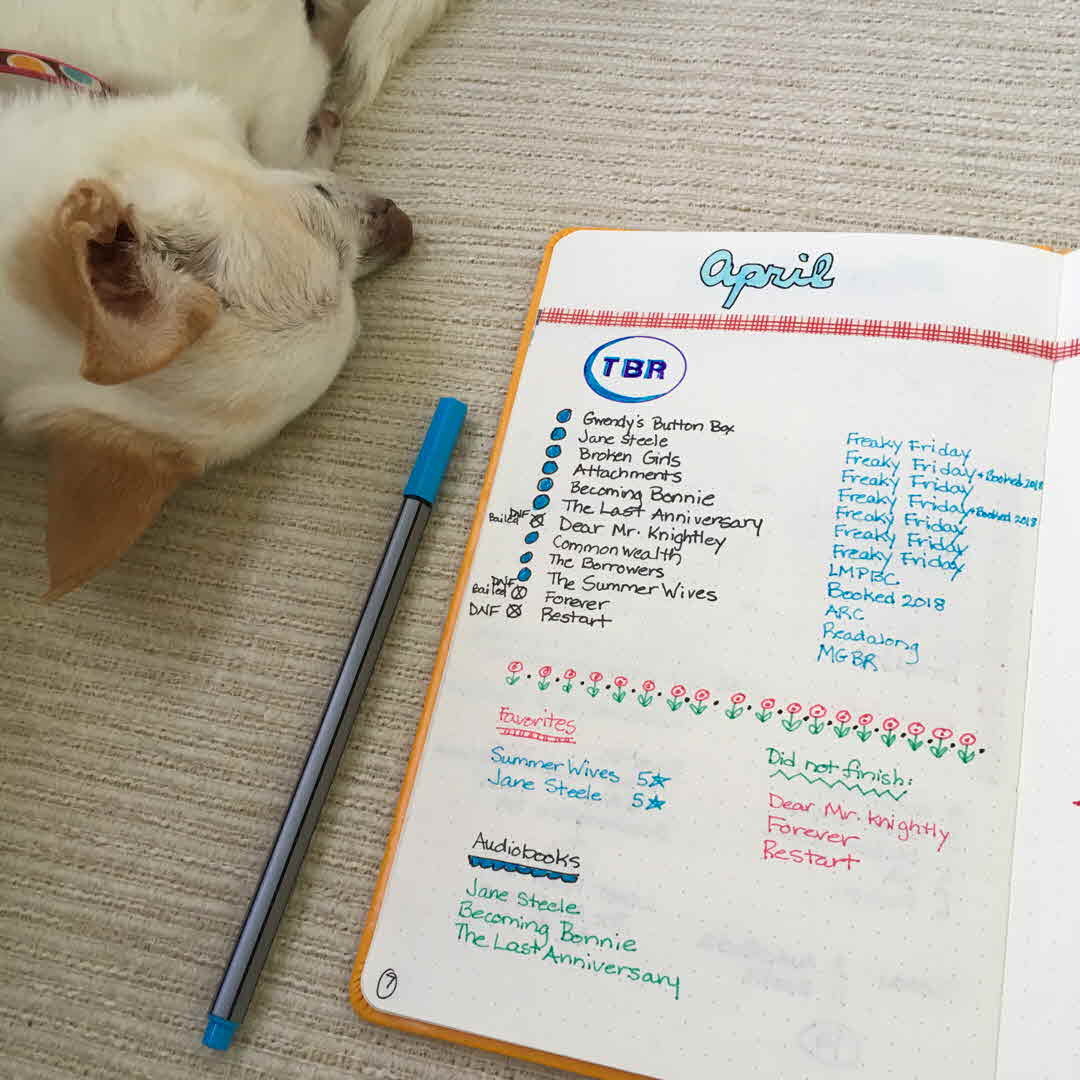 April
TBR
Gwendy's Button Box
Jane Steele
Broken Girls
Attachments
Becoming Bonnie
The Last Anniversary
DNF
Bailed Dear Mr. Knightley
Commonwealth
The Borrowers
The Summer Wives
DNF
Bailed Forever
DNF Restart
Freaky Friday
Freaky Friday + Booked 2018
Freaky Friday
Freaky Friday + Booked 2018
Freaky Friday
Freaky Friday
Freaky Friday
LMPBC
Booked 2018
ARC
Readalong
MGBR
Favorites
Summer Wives 5★
Jane Steele 5★
Did not finish:
Dear Mr. Knightly
Forever
Restart
Audiobooks
Jane Steele
Becoming Bonnie
The Last Anniversary